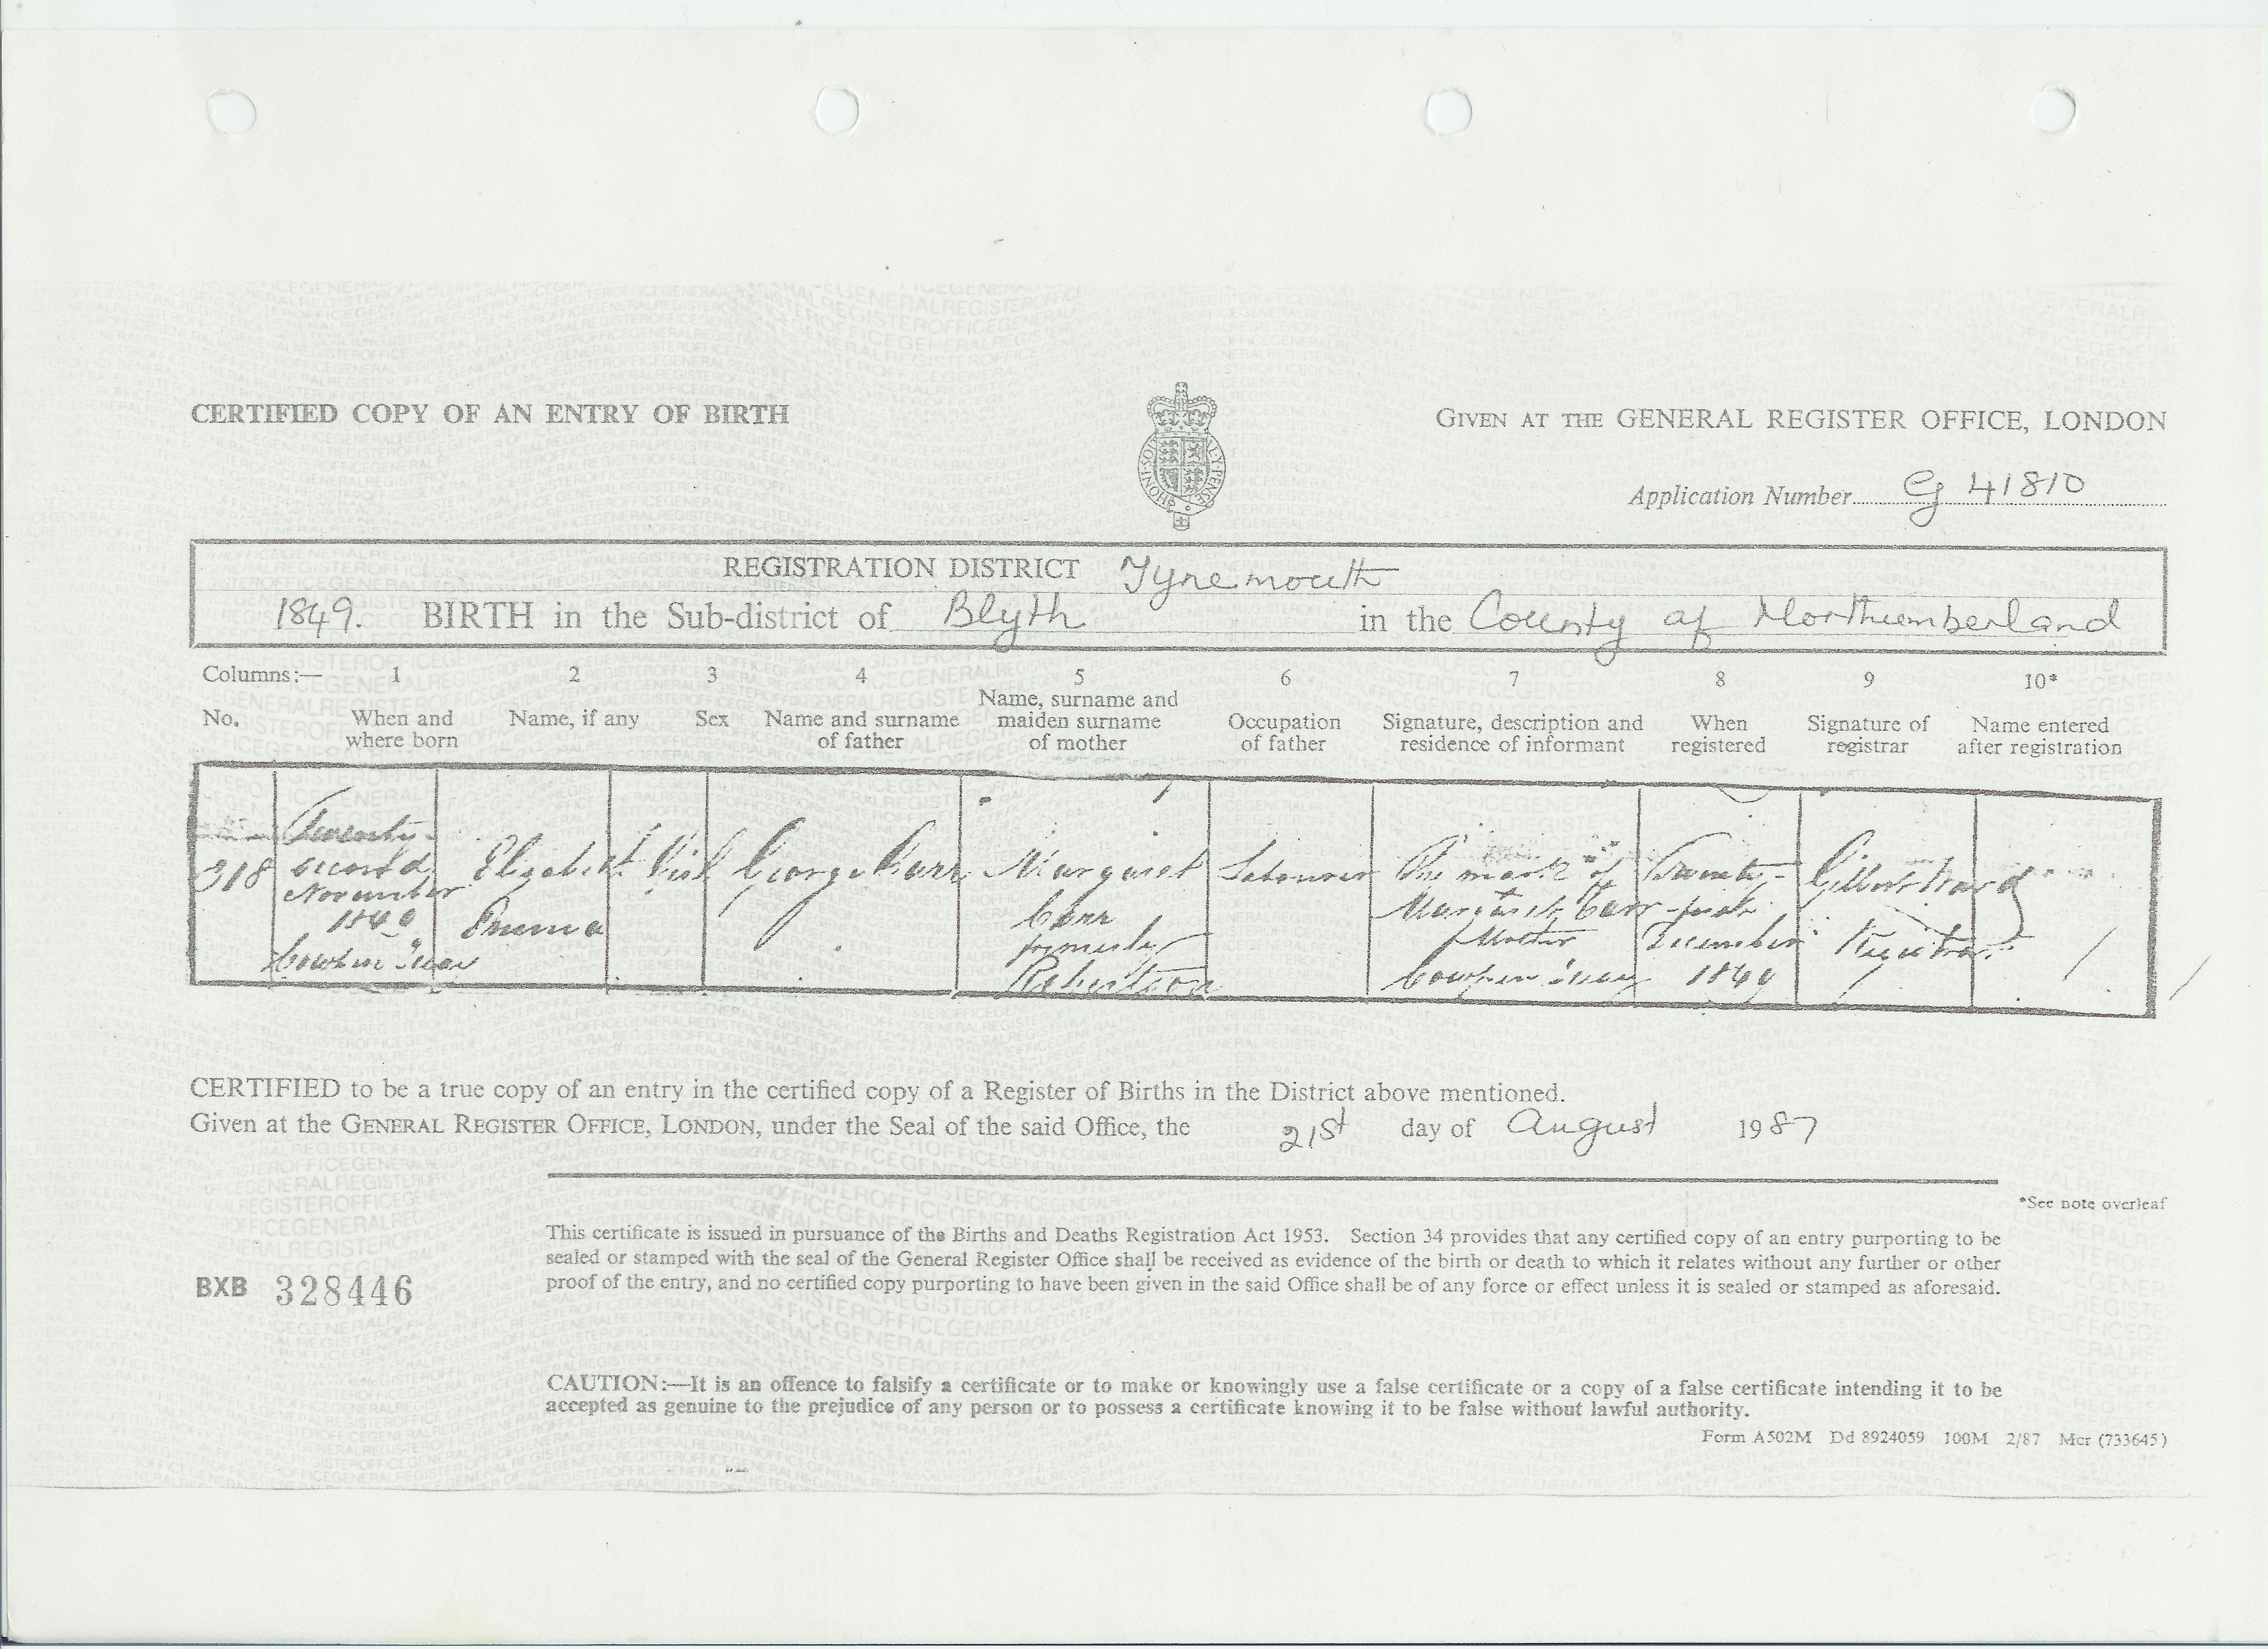 CERTIFIED COPY OF AN ENTRY OF BIRTH
GIVEN AT THE GENERAL REGISTER OFFICE, LONDON
HONI SOIT
Application Number G 41810
REGISTRATION DISTRICT Tynemouth
1849. BIRTH in the Sub-district of Blyth in the County of Northumberland
Columns:— 1 2 3 4 5 6 7 8 9 10*
No.
When and
where born
Name, if any
Sex
Name and surname
of father
Name, surname and
maiden surname
of mother
Occupation
of father
Signature, description and
residence of informant
When
registered
Signature of
registrar
Name entered
after registration
318
Twenty-
second
November
1849
Cowpen Quay
Elizabeth
Emma
Girl
George Carr
Margaret
Carr
formerly
Robertson
Labourer
The mark of
Margaret Carr
Mother
Cowpen Quay
December
1849
Gilbert Ward
Registrar
CERTIFIED to be a true copy of an entry in the certified copy of a Register of Births in the District above mentioned.
Given at the GENERAL REGISTER OFFICE, LONDON, under the Seal of the said Office, the 21st day of August 1987
*See note overleaf
This certificate is issued in pursuance of the Births and Deaths Registration Act 1953. Section 34 provides that any certified copy of an entry purporting to be
sealed or stamped with the seal of the General Register Office shall be received as evidence of the birth or death to which it relates without any further or other
proof of the entry, and no certified copy purporting to have been given in the said Office shall be of any force or effect unless it is sealed or stamped as aforesaid.
BXB 328446
CAUTION:—It is an offence to falsify a certificate or to make or knowingly use a false certificate or a copy of a false certificate intending it to be
accepted as genuine to the prejudice of any person or to possess a certificate knowing it to be false without lawful authority.
Form A502M Dd 8924059 100M 2/87 Mcr (733645)